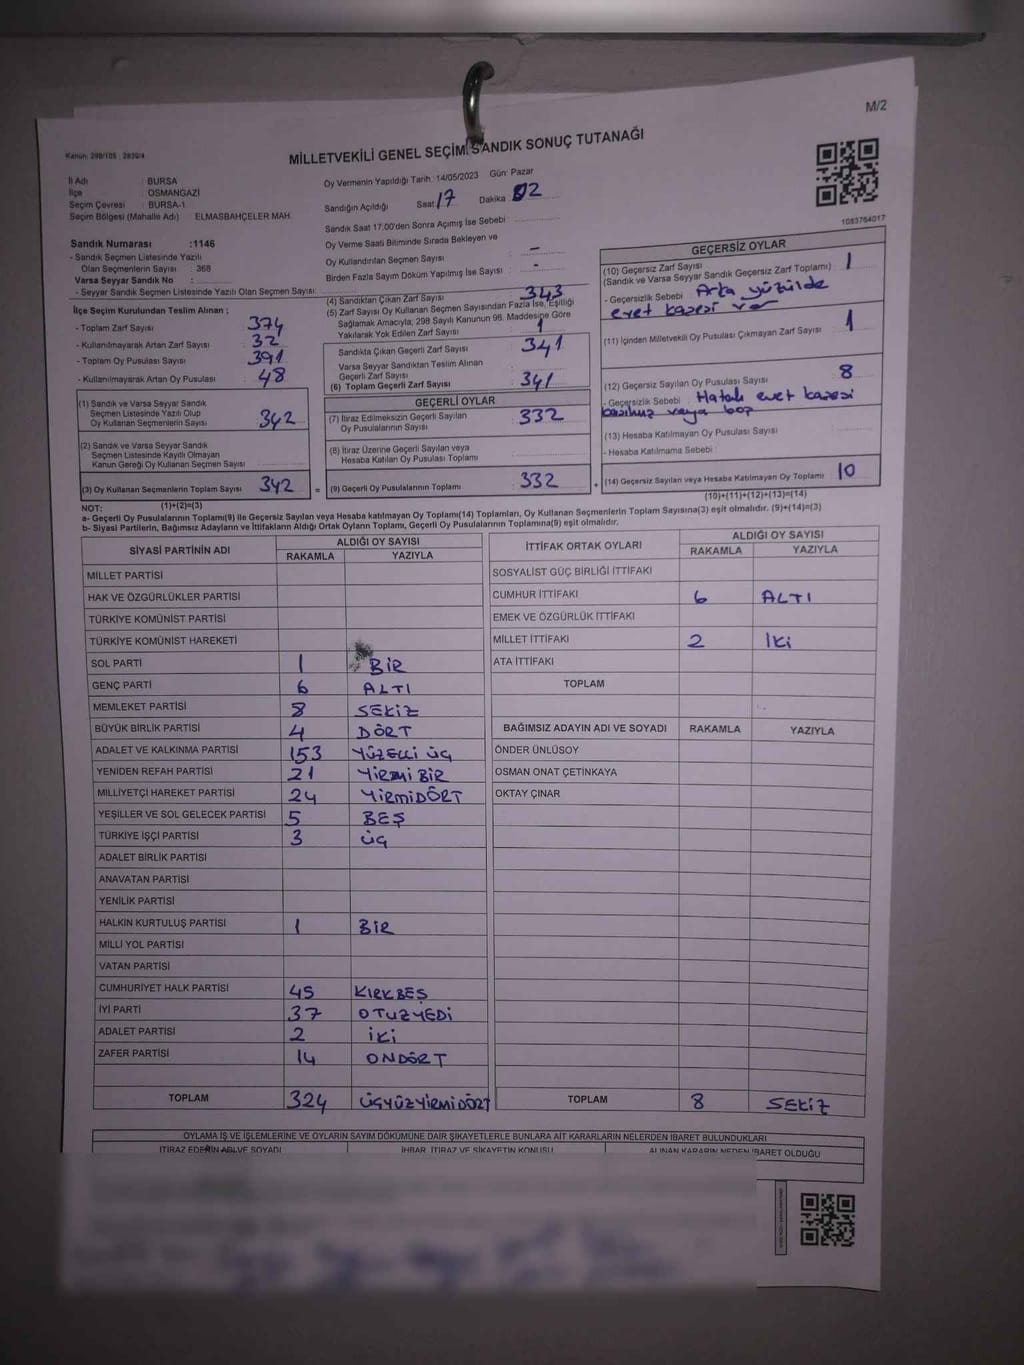 M/2
Kanun: 298/105 , 2839/4
MİLLETVEKİLİ GENEL SEÇİMİ SANDIK SONUÇ TUTANAĞI
İl Adı : BURSA
İlçe : OSMANGAZİ
Seçim Çevresi : BURSA-1
Seçim Bölgesi (Mahalle Adı) : ELMASBAHÇELER MAH.
Oy Vermenin Yapıldığı Tarih : 14/05/2023 Gün: Pazar
Sandığın Açıldığı Saat 17 Dakika 02
Sandık Saat 17.00'den Sonra Açımış İse Sebebi :
Oy Verme Saati Bitiminde Sırada Bekleyen ve
Oy Kullandırılan Seçmen Sayısı : -
Birden Fazla Sayım Döküm Yapılmış İse Sayısı : -
1083764017
Sandık Numarası :1146
- Sandık Seçmen Listesinde Yazılı
Olan Seçmenlerin Sayısı : 368
Varsa Seyyar Sandık No :
- Seyyar Sandık Seçmen Listesinde Yazılı Olan Seçmen Sayısı :
İlçe Seçim Kurulundan Teslim Alınan ;
- Toplam Zarf Sayısı : 374
- Kullanılmayarak Artan Zarf Sayısı : 32
- Toplam Oy Pusulası Sayısı : 391
- Kullanılmayarak Artan Oy Pusulası : 48
(1) Sandık ve Varsa Seyyar Sandık
Seçmen Listesinde Yazılı Olup
Oy Kullanan Seçmenlerin Sayısı : 342
(2) Sandık ve Varsa Seyyar Sandık
Seçmen Listesinde Kayıtlı Olmayan
Kanun Gereği Oy Kullanan Seçmen Sayısı :
(3) Oy Kullanan Seçmenlerin Toplam Sayısı : 342
(1)+(2)=(3)
(4) Sandıktan Çıkan Zarf Sayısı : 343
(5) Zarf Sayısı Oy Kullanan Seçmen Sayısından Fazla İse, Eşitliği
Sağlamak Amacıyla; 298 Sayılı Kanunun 98. Maddesine Göre
Yakılarak Yok Edilen Zarf Sayısı : 1
Sandıkta Çıkan Geçerli Zarf Sayısı : 341
Varsa Seyyar Sandıktan Teslim Alınan
Geçerli Zarf Sayısı :
(6) Toplam Geçerli Zarf Sayısı : 341
GEÇERLİ OYLAR
(7) İtiraz Edilmeksizin Geçerli Sayılan
Oy Pusulalarının Sayısı : 332
(8) İtiraz Üzerine Geçerli Sayılan veya
Hesaba Katılan Oy Pusulası Toplamı :
= (9) Geçerli Oy Pusulalarının Toplamı : 332
GEÇERSİZ OYLAR
(10) Geçersiz Zarf Sayısı
(Sandık ve Varsa Seyyar Sandık Geçersiz Zarf Toplamı) : 1
- Geçersizlik Sebebi : Arka yüzünde
evet kaşesi var
(11) İçinden Milletvekili Oy Pusulası Çıkmayan Zarf Sayısı : 1
(12) Geçersiz Sayılan Oy Pusulası Sayısı : 8
- Geçersizlik Sebebi : Hatalı evet kaşesi
basılmış veya boş
(13) Hesaba Katılmayan Oy Pusulası Sayısı :
- Hesaba Katılmama Sebebi :
+ (14) Geçersiz Sayılan veya Hesaba Katılmayan Oy Toplamı : 10
(10)+(11)+(12)+(13)=(14)
NOT:
a- Geçerli Oy Pusulalarının Toplamı(9) ile Geçersiz Sayılan veya Hesaba katılmayan Oy Toplamı(14) Toplamları, Oy Kullanan Seçmenlerin Toplam Sayısına(3) eşit olmalıdır. (9)+(14)=(3)
b- Siyasi Partilerin, Bağımsız Adayların ve İttifakların Aldığı Ortak Oyların Toplamı, Geçerli Oy Pusulalarının Toplamına(9) eşit olmalıdır.
SİYASİ PARTİNİN ADI ALDIĞI OY SAYISI
RAKAMLA YAZIYLA
MİLLET PARTİSİ
HAK VE ÖZGÜRLÜKLER PARTİSİ
TÜRKİYE KOMÜNİST PARTİSİ
TÜRKİYE KOMÜNİST HAREKETİ
SOL PARTİ 1 BİR
GENÇ PARTİ 6 ALTI
MEMLEKET PARTİSİ 8 SEKİZ
BÜYÜK BİRLİK PARTİSİ 4 DÖRT
ADALET VE KALKINMA PARTİSİ 153 YÜZELLİ ÜÇ
YENİDEN REFAH PARTİSİ 21 YİRMİ BİR
MİLLİYETÇİ HAREKET PARTİSİ 24 YİRMİDÖRT
YEŞİLLER VE SOL GELECEK PARTİSİ 5 BEŞ
TÜRKİYE İŞÇİ PARTİSİ 3 ÜÇ
ADALET BİRLİK PARTİSİ
ANAVATAN PARTİSİ
YENİLİK PARTİSİ
HALKIN KURTULUŞ PARTİSİ 1 BİR
MİLLİ YOL PARTİSİ
VATAN PARTİSİ
CUMHURİYET HALK PARTİSİ 45 KIRKBEŞ
İYİ PARTİ 37 OTUZYEDİ
ADALET PARTİSİ 2 İKİ
ZAFER PARTİSİ 14 ONDÖRT
TOPLAM 324 ÜÇYÜZYİRMİDÖRT
İTTİFAK ORTAK OYLARI ALDIĞI OY SAYISI
RAKAMLA YAZIYLA
SOSYALİST GÜÇ BİRLİĞİ İTTİFAKI
CUMHUR İTTİFAKI 6 ALTI
EMEK VE ÖZGÜRLÜK İTTİFAKI
MİLLET İTTİFAKI 2 İKİ
ATA İTTİFAKI
TOPLAM
BAĞIMSIZ ADAYIN ADI VE SOYADI RAKAMLA YAZIYLA
ÖNDER ÜNLÜSOY
OSMAN ONAT ÇETİNKAYA
OKTAY ÇINAR
TOPLAM 8 SEKİZ
OYLAMA İŞ VE İŞLEMLERİNE VE OYLARIN SAYIM DÖKÜMÜNE DAİR ŞİKAYETLERLE BUNLARA AİT KARARLARIN NELERDEN İBARET BULUNDUKLARI
İTİRAZ EDENİN ADI VE SOYADI İHBAR, İTİRAZ VE ŞİKAYETİN KONUSU ALINAN KARARIN NEDEN İBARET OLDUĞU